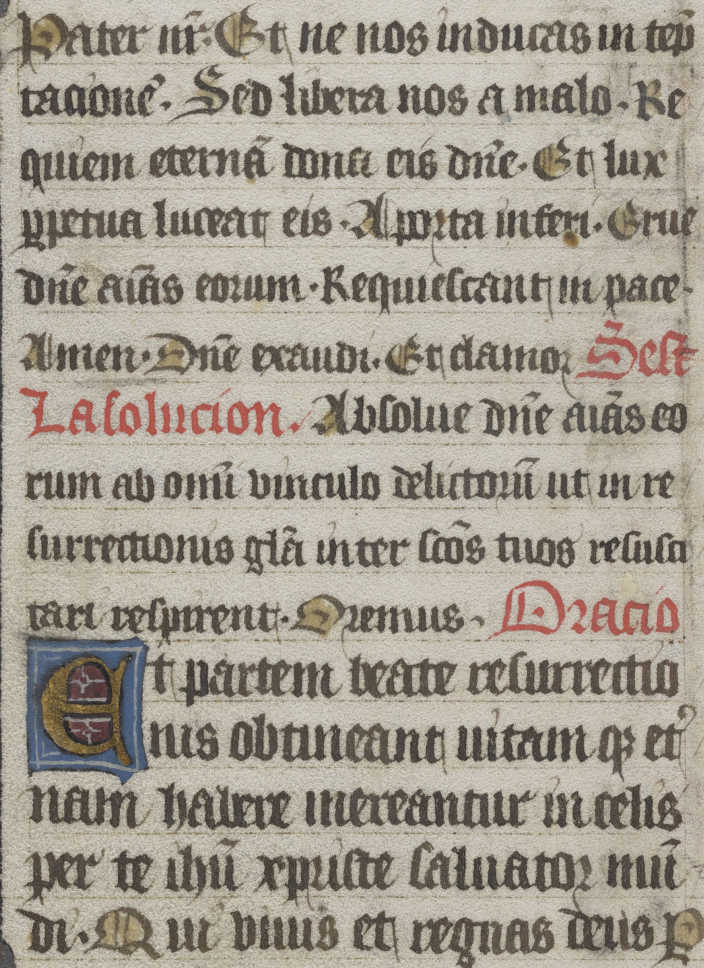 Pater nr̃. Et ne nos inducas in tep̃
tacionẽ. Sed libera nos a malo. Re
quiem eternã dona eis dñe. Et lux
ꝑpetua luceat eis. A porta inferi. Erue
dñe aiãs eorum. Requiescant in pace.
Amen. Dñe exaudi. Et clamor
Lasolucion. Absolue dñe aiãs eo
rum ab omĩ vinculo delictorũ ut in re
surrectionis glã inter scõs tuos resusci
tari respirent. Oremus. Oracio
Et partem beate resurrectio
nis obtineant uitam qꝫ et͛
nam habere mereantur in celis
per te ihũ xpriste saluator mũ
di. Qui viuis et regnas deus P